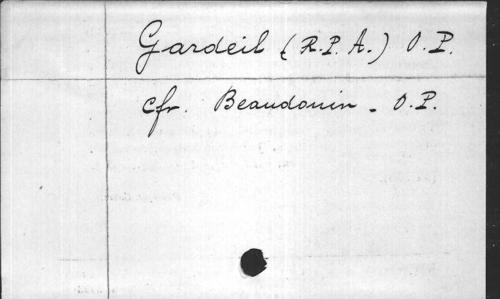 Gardeil (R.P. A.) O.P.
cfr. Beaudouin - O.P.